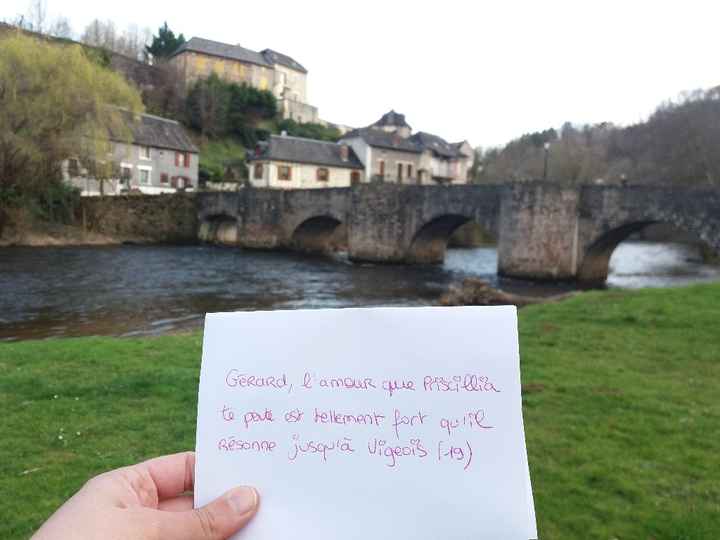 Gérard, l'amour que Priscillia
te porte est tellement fort qu'il
résonne jusqu'à Vigeois (19)